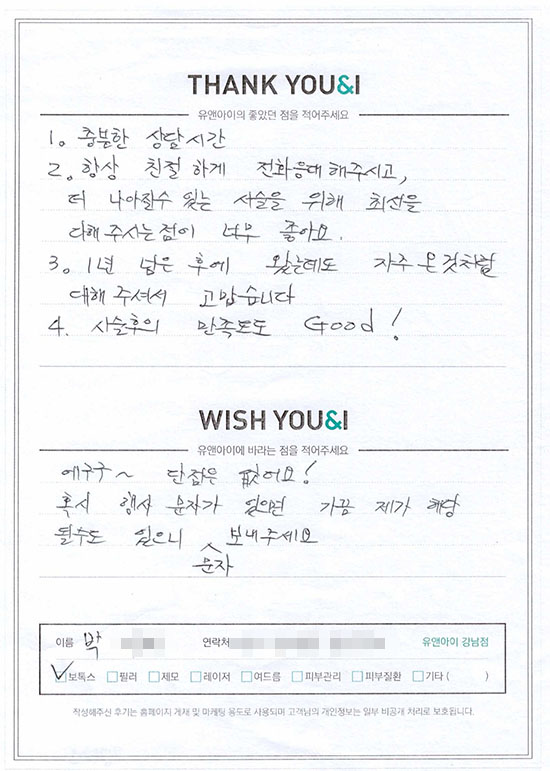 THANK YOU&I
유앤아이의 좋았던 점을 적어주세요
1. 충분한 상담시간
2. 항상 친절하게 전화응대 해주시고,
더 나아질수 있는 시술을 위해 최선을
다해 주시는점이 너무 좋아요.
3. 1년 넘은 후에 왔는데도 자주 온것처럼
대해 주셔서 고맙습니다
4. 시술후의 만족도도 Good!
WISH YOU&I
유앤아이에 바라는 점을 적어주세요
에구구~ 단점은 없어요!
혹시 행사 문자가 있으면 가끔 제가 해당
될수도 있으니 문자 보내주세요
이름 박 연락처 유앤아이 강남점
보톡스 필러 제모 레이저 여드름 피부관리 피부질환 기타 ( )
작성해주신 후기는 홈페이지 게재 및 마케팅 용도로 사용되며 고객님의 개인정보는 일부 비공개 처리로 보호됩니다.